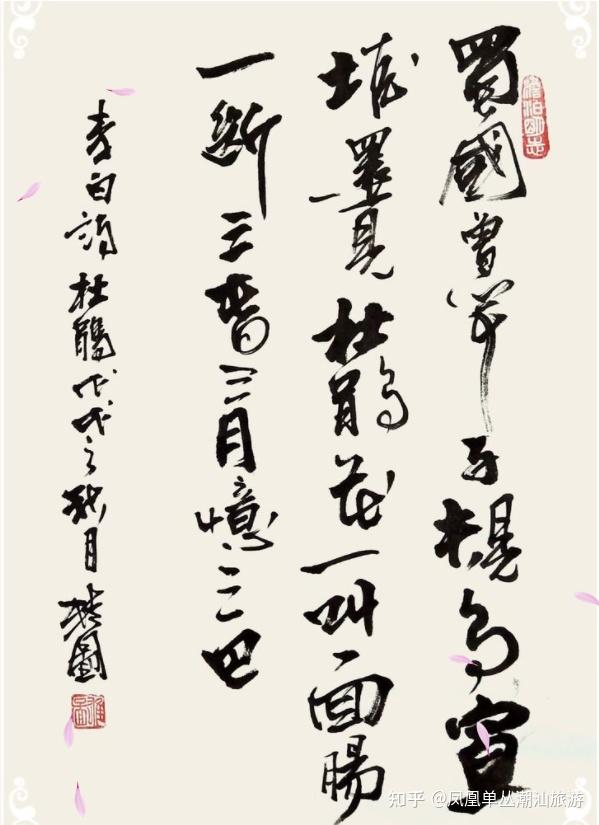 蜀國曾聞子規鳥宣
城還見杜鵑花一叫一回腸
一斷三春三月憶三巴
李白詩杜鵑戊戌之秋月
澹泊明志
知乎 @凤凰单丛潮汕旅游